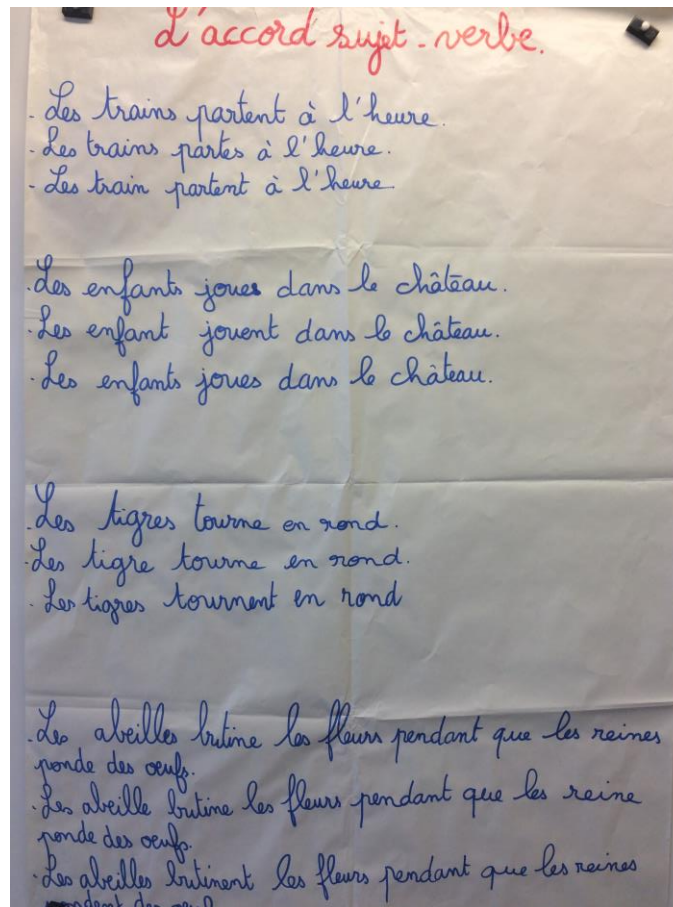 L'accord sujet-verbe.
- Les trains partent à l'heure.
- Les trains partes à l'heure.
- Les train partent à l'heure.
. Les enfants joues dans le château.
. Les enfant jouent dans le château.
. Les enfants joues dans le château.
. Les tigres tourne en rond.
. Les tigre tourne en rond.
. Les tigres tournent en rond
. Les abeilles butine les fleurs pendant que les reines
ponde des oeufs.
. Les abeille butine les fleurs pendant que les reine
ponde des oeufs.
. Les abeilles butinent les fleurs pendant que les reines
pondent des